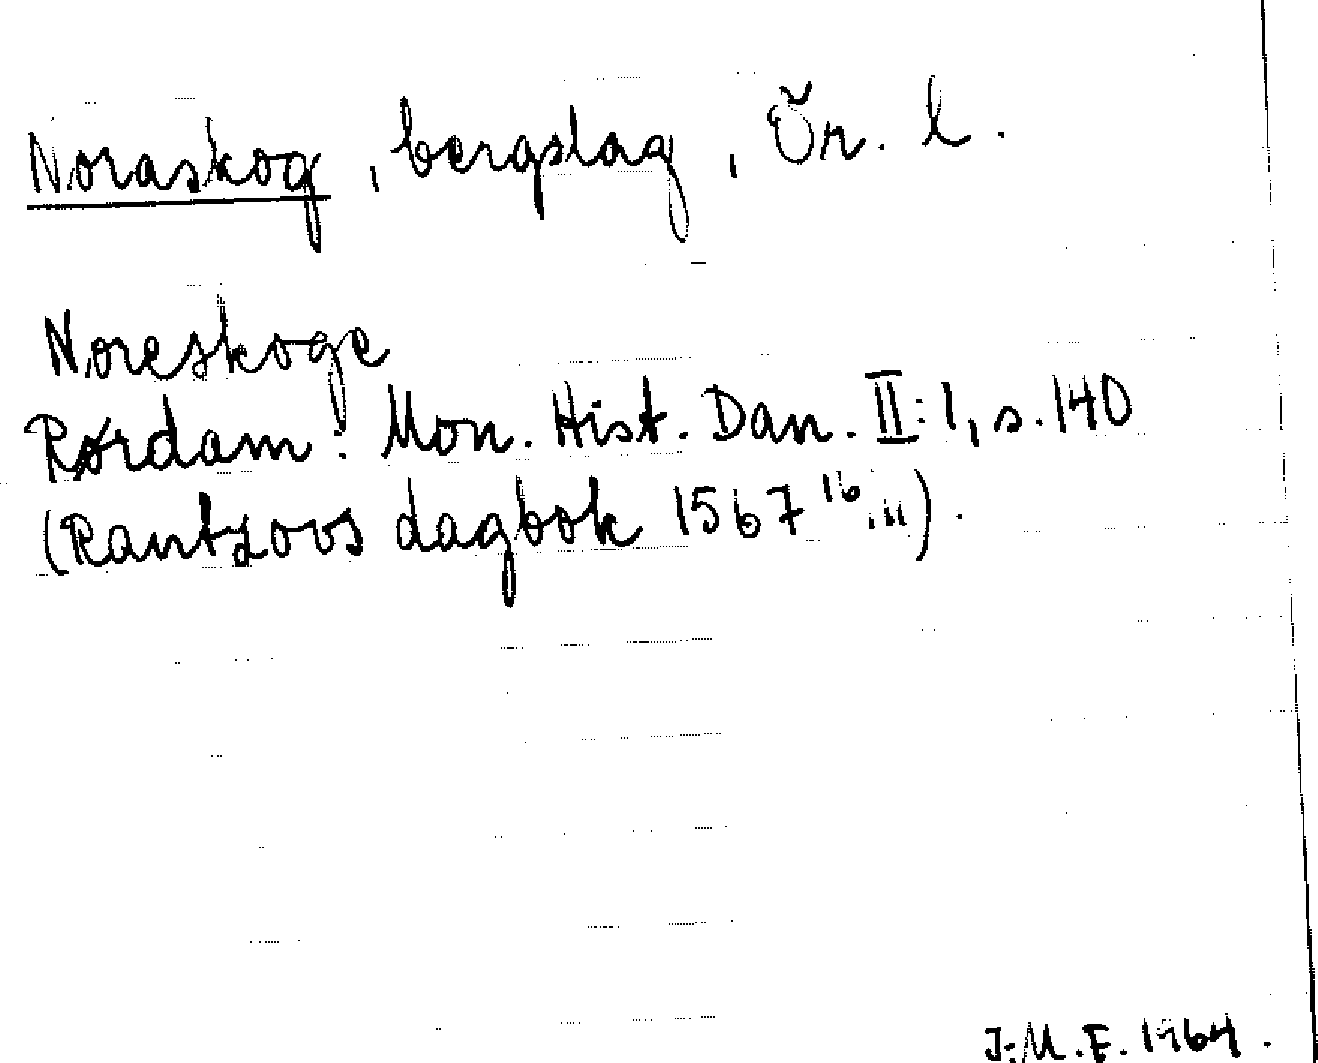 Noraskog, bergslag, Ör. l.
Noreskoge
Rørdam: Mon. Hist. Dan. II:1, s. 140
(Rantzovs dagbok 1567 16/III).
J:M.F. 1964.